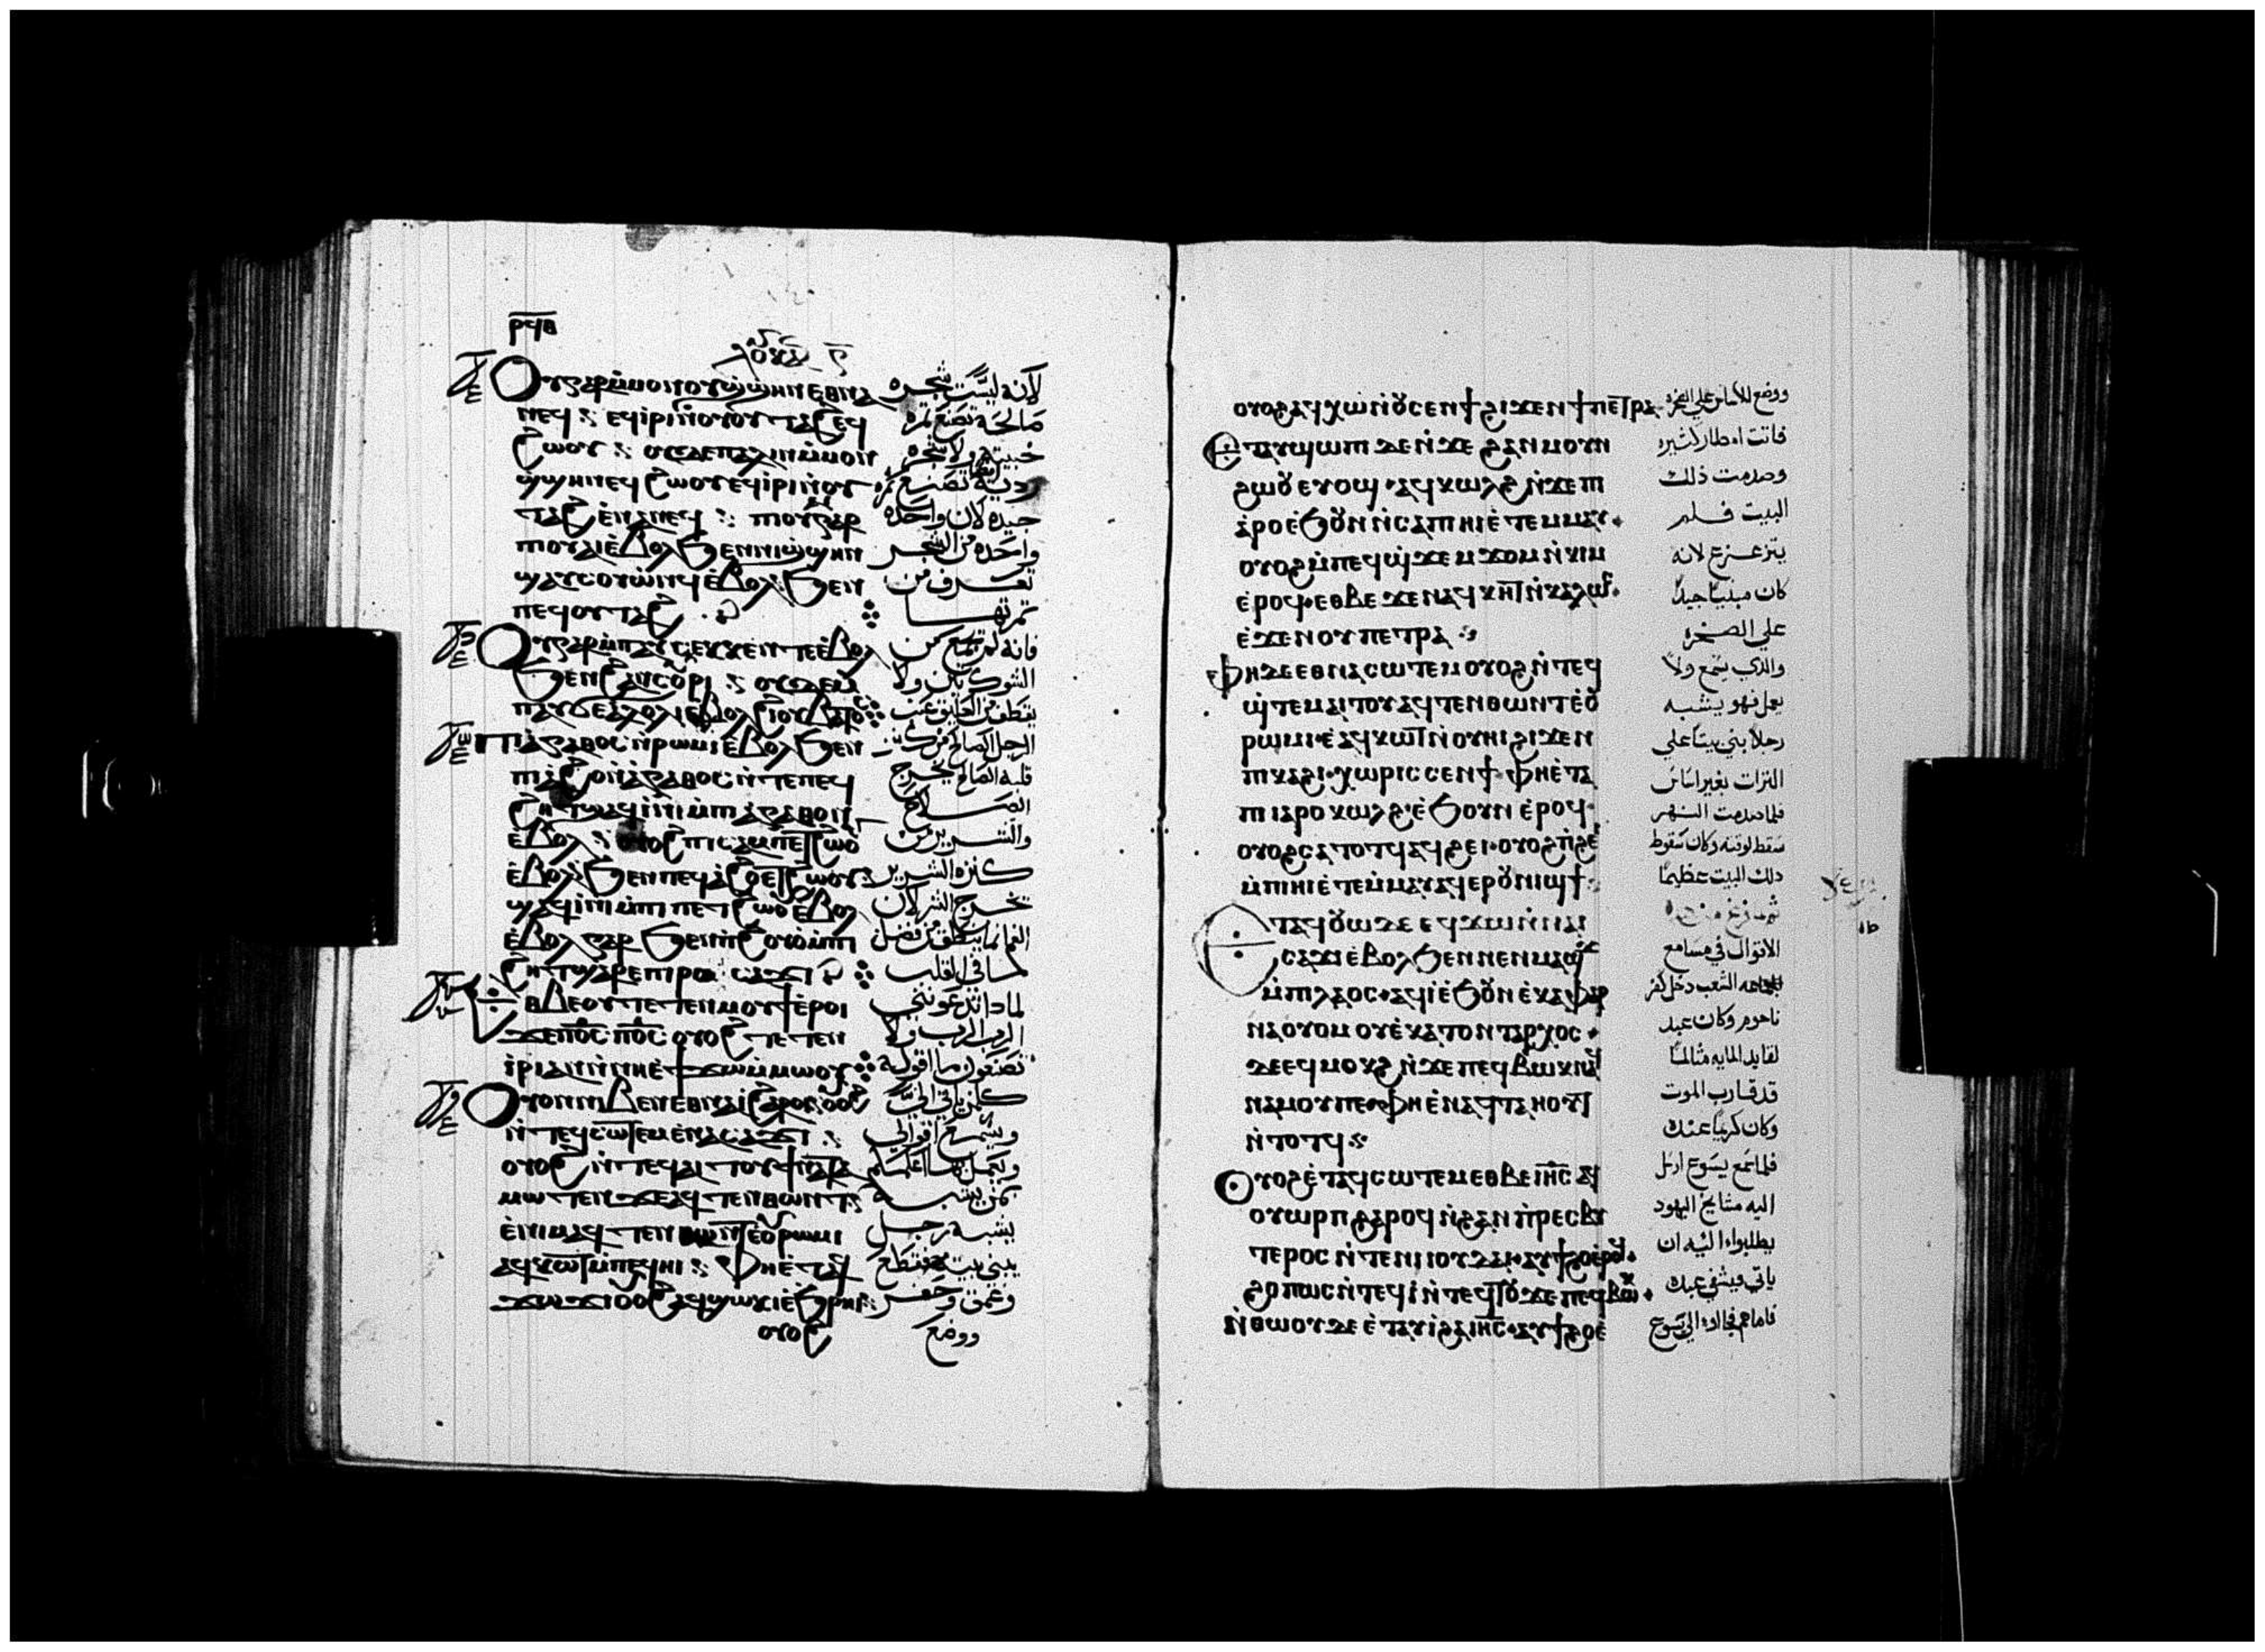 ⲣϥⲃ
ⲗⲟⲩⲕⲁ ⲋ
Ⲟⲩⲅⲁⲣ ⲙ̀ⲙⲟⲛ ⲟⲩϣ̀ϣⲏⲛ ⲉⲑⲛⲁ
ⲛⲉϥ ⲉϥⲓⲣⲓ ⲛ̀ⲟⲩⲟⲩⲧⲁϩ ⲉϥ
ϩⲱⲟⲩ ⲟⲩⲇⲉ ⲡⲁⲗⲓⲛ ⲙ̀ⲙⲟⲛ
ϣ̀ϣⲏⲛ ⲉϥϩⲱⲟⲩ ⲉϥⲓⲣⲓ ⲛ̀ⲟⲩ
ⲧⲁϩ ⲉⲛⲁⲛⲉϥ ⲡⲓⲟⲩⲁⲓ ⲅⲁⲣ
ⲡⲓⲟⲩⲁⲓ ⲉ̀ⲃⲟⲗ ϧⲉⲛ ⲛⲓϣ̀ϣⲏⲛ
ϣⲁⲩⲥⲟⲩⲱⲛϥ ⲉ̀ⲃⲟⲗ ϧⲉⲛ
ⲡⲉϥⲟⲩⲧⲁϩ
Ⲟⲩⲅⲁⲣ ⲙ̀ⲡⲁⲩⲥⲉⲕⲕⲉⲛⲧⲉ ⲉ̀ⲃⲟⲗ
ϧⲉⲛ ϩⲁⲛⲥⲟⲩⲣⲓ ⲟⲩⲇⲉ ⲙ̀
ⲡⲁⲩϭⲉⲗⲁⲗⲟⲗⲓ ⲉ̀ⲃⲟⲗ ϩⲓ ⲟⲩⲃⲁⲧⲟⲥ
Ⲡⲓⲁ̀ⲅⲁⲑⲟⲥ ⲛ̀ⲣⲱⲙⲓ ⲉ̀ⲃⲟⲗ ϧⲉⲛ
ⲡⲓⲁϩⲟ ⲛ̀ⲁ̀ⲅⲁⲑⲟⲥ ⲛ̀ⲧⲉ ⲡⲉϥ
ϩⲏⲧ ϣⲁϥⲓⲛⲓ ⲙ̀ⲡⲓⲁ̀ⲅⲁⲑⲟⲛ
ⲉ̀ⲃⲟⲗ ⲟⲩⲟϩ ⲡⲓⲥⲁⲙⲡⲉⲧϩⲱⲟⲩ
ⲉ̀ⲃⲟⲗ ϧⲉⲛ ⲡⲉϥⲁϩⲟ ⲉⲧϩⲱⲟⲩ
ϣⲁϥⲓⲛⲓ ⲙ̀ⲡⲓⲡⲉⲧϩⲱⲟⲩ ⲉ̀ⲃⲟⲗ
ⲉ̀ⲃⲟⲗ ⲅⲁⲣ ϧⲉⲛ ⲡϩⲟⲩⲟ ⲙ̀ⲡⲓ
ϩⲏⲧ ϣⲁⲣⲉ ⲡⲓⲣⲱ ⲥⲁϫⲓ
Ⲉⲑⲃⲉ ⲟⲩ ⲧⲉⲧⲉⲛⲙⲟⲩϯ ⲉ̀ⲣⲟⲓ
ϫⲉ ⲡϭⲥ ⲡϭⲥ ⲟⲩⲟϩ ⲧⲉⲧⲉⲛ
ⲓ̀ⲣⲓ ⲁⲛ ⲛ̀ⲛⲏ ⲉ̀ϯϫⲱ ⲙ̀ⲙⲱⲟⲩ
Ⲟⲩⲟⲛ ⲛⲓⲃⲉⲛ ⲉⲑⲛⲁⲓ̀ ϩⲁⲣⲟⲓ ⲟⲩⲟϩ
ⲛ̀ⲧⲉϥⲥⲱⲧⲉⲙ ⲉ̀ⲛⲁⲥⲁϫⲓ
ⲟⲩⲟϩ ⲛ̀ⲧⲉϥⲁⲓⲧⲟⲩ ϯⲛⲁⲧⲁ
ⲙⲱⲧⲉⲛ ϫⲉ ⲁϥⲧⲉⲛⲑⲱⲛⲧ
ⲉ̀ⲛⲓⲙ ⲁϥⲧⲉⲛⲑⲱⲛⲧ ⲉ̀ⲟⲩⲣⲱⲙⲓ
ⲁϥⲕⲱⲧ ⲙ̀ⲡⲉϥⲏⲓ ⲫⲏⲉ̀ⲧⲁϥ
ϣⲱⲕⲓ ⲉ̀ϧⲣⲏⲓ
ⲟⲩⲟϩ
لانه ليست شجره
صالحة تصنع ثمره
خبيثه ولا شجره
رديئة تصنع ثمره
جيده لان واحده
واحده من الشجر
تعرف من
ثمرتها
فانه لم يجمع من
الشوك تين ولا
يقطف من العليق عنب
الرجل الصالح من كنز
قلبه الصالح يخرج
الصلاح
والشرير من
كنزه الشرير
يخرج الشر لان
الفم انما ينطق من فضل
ما في القلب
لماذا تدعونني
الرب الرب ولا
تصنعون ما اقوله
كلمن ياتي اليّ
ويسمع اقوالي
ويعمل بها اعلمكم
بمن يشبه
يشبه رجل
يبني بيت
وعمق وحفر
ووضع
ⲟⲩⲟϩ ⲁϥⲭⲱ ⲛ̀ⲟⲩⲥⲉⲛϯ ϩⲓϫⲉⲛ ϯⲡⲉⲧⲣⲁ
Ⲉⲧⲁⲩϣⲱⲡⲓ ⲇⲉ ⲛ̀ϫⲉ ϩⲁⲛⲙⲟⲩⲛ
ϩⲱⲟⲩ ⲉⲩⲟϣ ⲁϥⲕⲱⲗϩ ⲛ̀ϫⲉ ⲡⲓ
ⲁⲣⲟ ⲉ̀ϧⲟⲩⲛ ⲛ̀ⲥⲁ ⲡⲓⲏⲓ ⲉ̀ⲧⲉⲙⲙⲁⲩ
ⲟⲩⲟϩ ⲙ̀ⲡⲉϥϣϫⲉⲙϫⲟⲙ ⲛ̀ⲕⲓⲙ
ⲉ̀ⲣⲟϥ ⲉⲑⲃⲉ ϫⲉ ⲛⲁϥⲕⲏⲧ ⲛ̀ⲕⲁⲗⲱⲥ
ⲉ̀ϫⲉⲛ ⲟⲩⲡⲉⲧⲣⲁ
Ⲫⲏ ⲇⲉ ⲉⲑⲛⲁⲥⲱⲧⲉⲙ ⲟⲩⲟϩ ⲛ̀ⲧⲉϥ
ϣ̀ⲧⲉⲙⲁⲓⲧⲟⲩ ⲁϥⲧⲉⲛⲑⲱⲛⲧ ⲉ̀ⲟⲩ
ⲣⲱⲙⲓ ⲉ̀ⲁϥⲕⲱⲧ ⲛ̀ⲟⲩⲏⲓ ϩⲓϫⲉⲛ
ⲡⲕⲁϩⲓ ⲭⲱⲣⲓⲥ ⲥⲉⲛϯ ⲫⲏⲉ̀ⲧⲁ
ⲡⲓⲁⲣⲟ ⲕⲱⲗϩ ⲉ̀ϧⲟⲩⲛ ⲉ̀ⲣⲟϥ
ⲟⲩⲟϩ ⲥⲁⲧⲟⲧϥ ⲁϥϩⲉⲓ ⲟⲩⲟϩ ⲡ̀ϩⲉⲓ
ⲙ̀ⲡⲓⲏⲓ ⲉ̀ⲧⲉⲙ̀ⲙⲁⲩ ⲁϥⲉⲣⲟⲩⲛⲓϣϯ
Ⲉⲧⲁϥⲟⲩⲱ ⲇⲉ ⲉϥϫⲱ ⲛ̀ⲛⲁⲓ
ⲥⲁϫⲓ ⲉ̀ⲃⲟⲗ ϧⲉⲛ ⲛⲉⲛⲙⲁϣϫ
ⲙ̀ⲡⲓⲗⲁⲟⲥ ⲁϥⲓ̀ ⲉ̀ϧⲟⲩⲛ ⲉ̀ⲕⲁⲫⲁⲣ
ⲛⲁⲟⲩⲟⲙ ⲟⲩⲉ̀ⲕⲁⲧⲟⲛⲧⲁⲣⲭⲟⲥ
ⲇⲉ ⲉϥⲙⲟⲕϩ ⲛ̀ϫⲉ ⲡⲉϥⲃⲱⲕ ⲛⲁϥ
ⲛⲁⲙⲟⲩ ⲡⲉ ⲫⲏ ⲉ̀ⲛⲁϥⲧⲁⲓⲏⲟⲩⲧ
ⲛ̀ⲧⲟⲧϥ
Ⲟⲩⲟϩ ⲉ̀ⲧⲁϥⲥⲱⲧⲉⲙ ⲉⲑⲃⲉ ⲓⲏⲥ ⲁϥ
ⲟⲩⲱⲣⲡ ϩⲁⲣⲟϥ ⲛ̀ϩⲁⲛⲡ̀ⲣⲉⲥⲃⲩ
ⲧⲉⲣⲟⲥ ⲛ̀ⲧⲉ ⲛⲓⲓⲟⲩⲇⲁⲓ ⲁⲩϯϩⲟ ⲉ̀ⲣⲟϥ
ϩⲟⲡⲱⲥ ⲛ̀ⲧⲉϥⲓ̀ ⲛ̀ⲧⲉϥⲧⲟⲩϫⲉ ⲡⲉϥⲃⲱⲕ
Ⲛ̀ⲑⲱⲟⲩ ⲇⲉ ⲉ̀ⲧⲁⲩⲓ̀ ϩⲁ ⲓⲏⲥ ⲁⲩϯϩⲟ ⲉ̀
ووضع الاساس علي الصخره
فاتت امطار كثيره
وصدمت ذلك
البيت فلم
يتزعزع لانه
كان مبنيًا جيدًا
علي الصخره
والذي يسمع ولا
يعمل فهو يشبه
رجلا بني بيتا علي
التراب بغير اساس
فلما صدمت النهر
سقط لوقته وكان سقوط
ذلك البيت عظيمًا
الاقوال في مسامع
الشعب دخل كفر
ناحوم وكان عبد
لقايد المايه متالمًا
قد قارب الموت
وكان كريمًا عنده
فلما سمع يسوع ارسل
اليه مشايخ اليهود
يطلبوا اليه ان
ياتي ويشفي عبده
فاما هم فجاوا الي يسوع